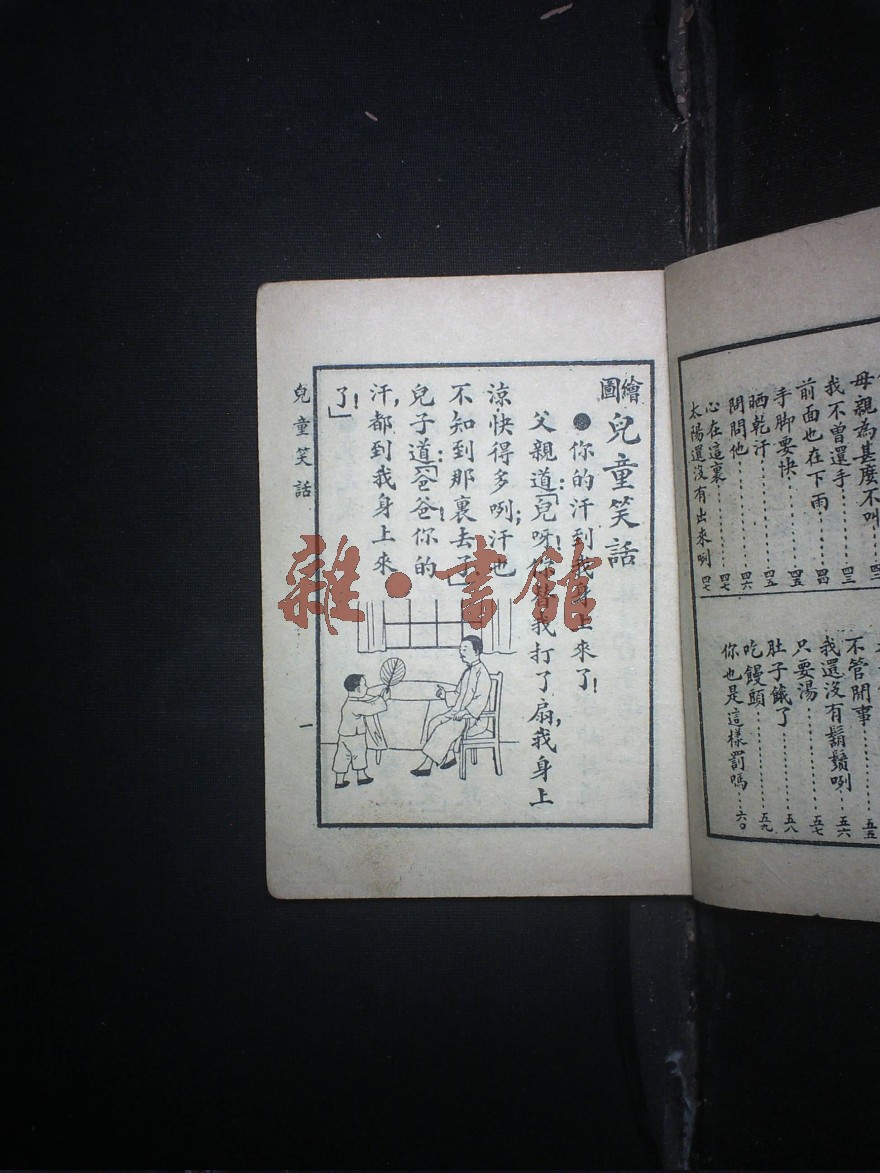 母親為甚麼不叫
我不曾還手……四三
前面也在下雨……四四
手脚要快……四五
晒乾汗……四五
問問他……四六
心在這裏……四七
太陽還沒有出來咧 四七
五五
不管閒事
我還沒有鬍鬚咧……五六
只要湯……五七
肚子餓了……五八
吃饅頭……五九
你也是這樣罰嗎……六〇
繪圖兒童笑話
●你的汗到我身上來了!
父親道:「兒呀!你替我打了扇,我身上
涼快得多咧;汗也
不知到那裏去了。」
兒子道:「爸爸!你的
汗,都到我身上來
了!」
兒童笑話
一
雜·書館